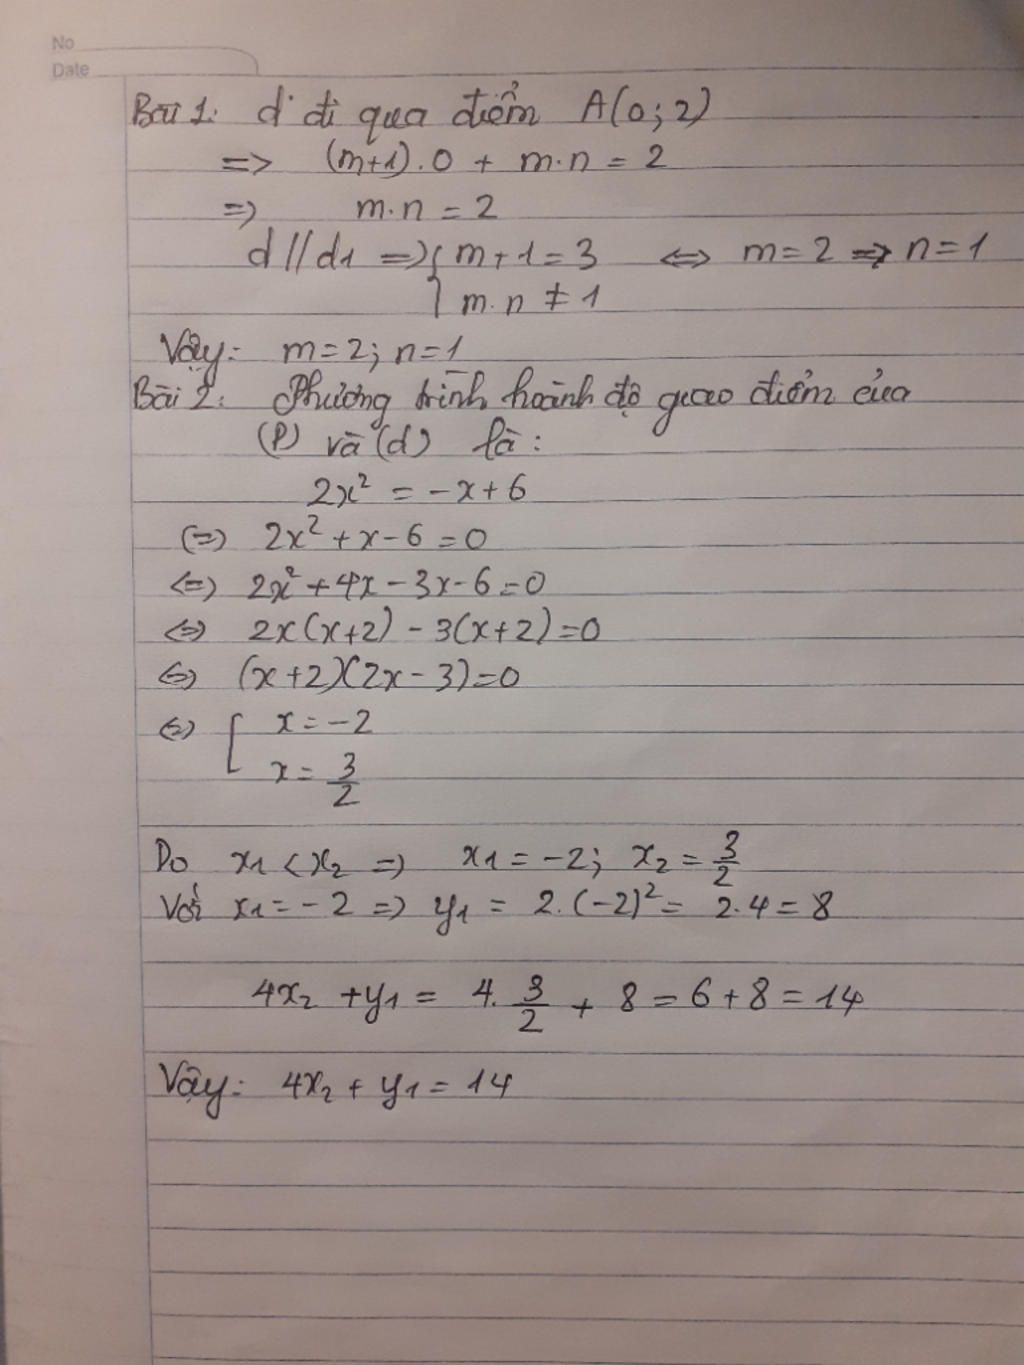 No
Date
Bài 1: d đi qua điểm A(0; 2)
=> (m+1).0 + m.n = 2
=> m.n = 2
d // d1 => { m+1 = 3 <=> m = 2 => n = 1
m.n ≠ 1
Vậy: m = 2; n = 1
Bài 2: Phương trình hoành độ giao điểm của
(P) và (d) là:
2x² = -x + 6
<=> 2x² + x - 6 = 0
<=> 2x² + 4x - 3x - 6 = 0
<=> 2x(x+2) - 3(x+2) = 0
<=> (x+2)(2x-3) = 0
<=> [ x = -2
x = 3/2
Do x1 < x2 => x1 = -2; x2 = 3/2
Với x1 = -2 => y1 = 2.(-2)² = 2.4 = 8
4x2 + y1 = 4. 3/2 + 8 = 6 + 8 = 14
Vậy: 4x2 + y1 = 14